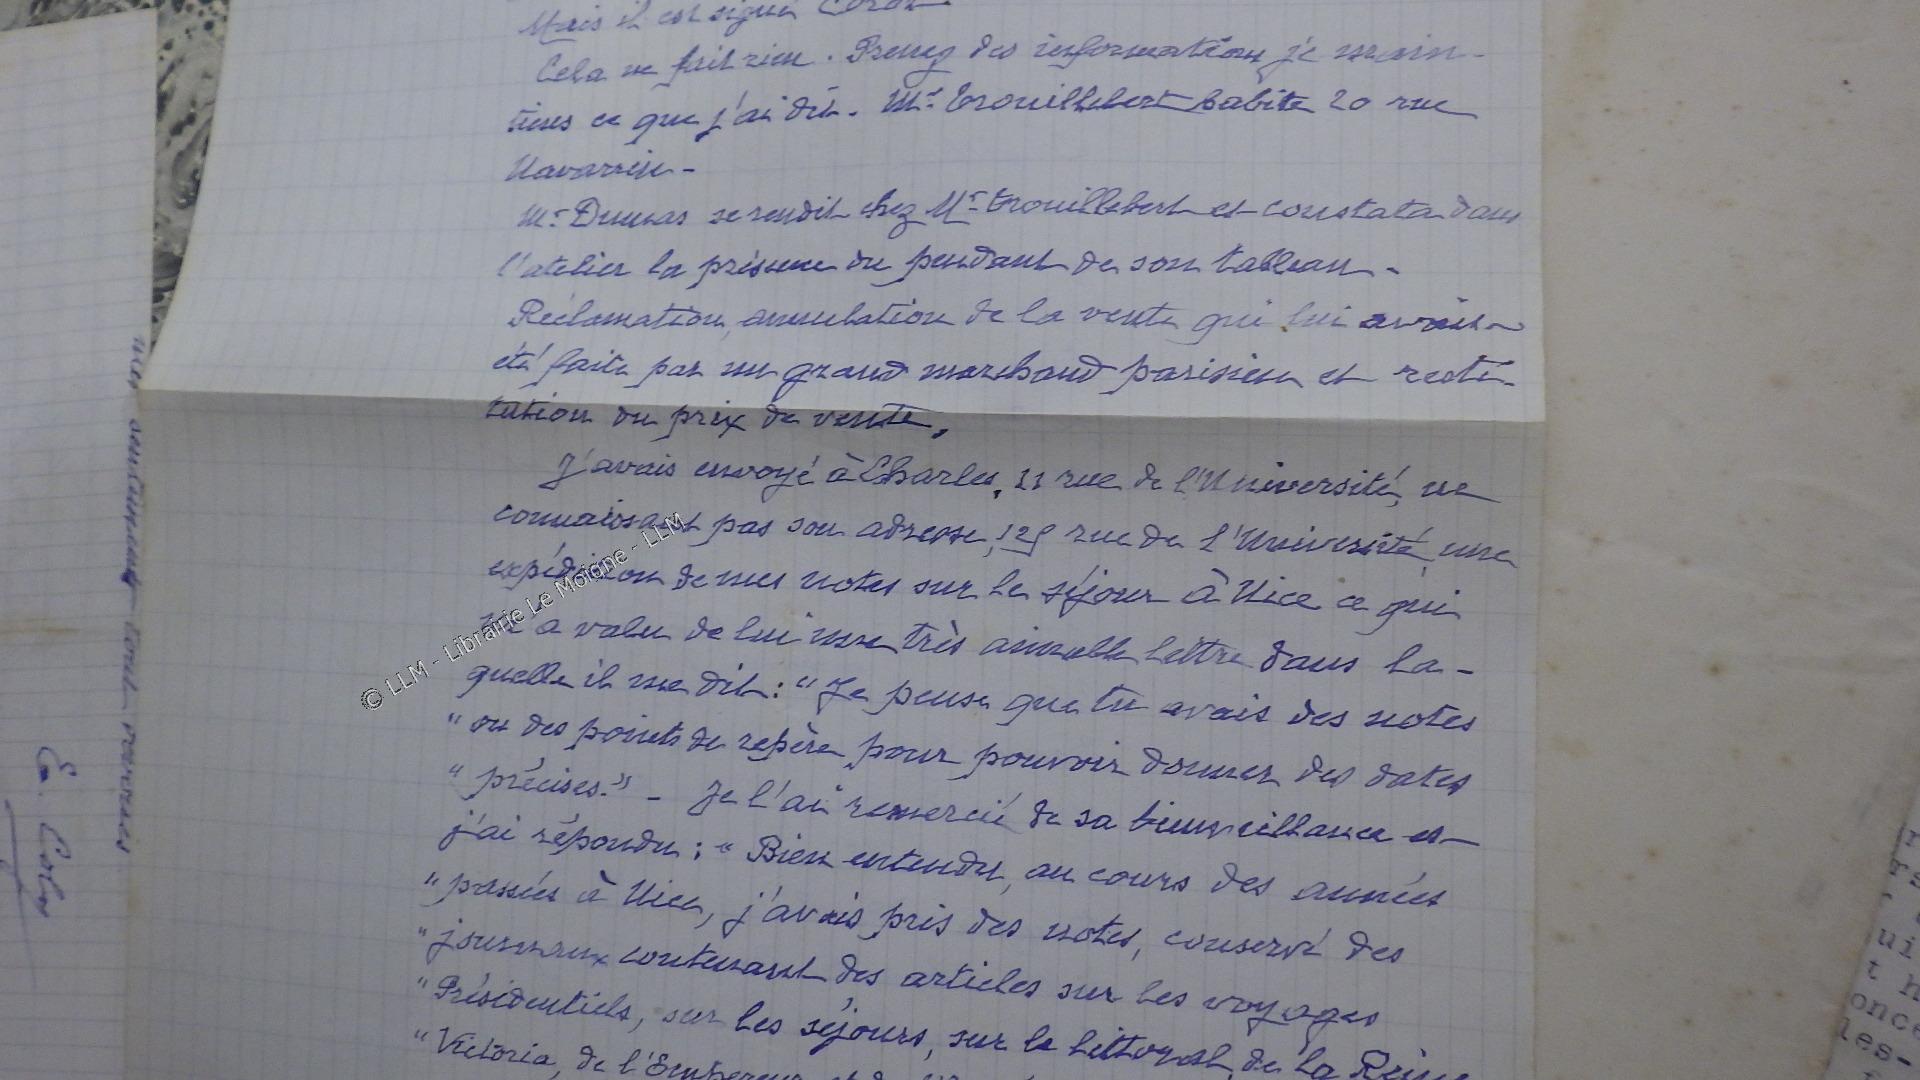 Mais il est signé Corot.
Cela ne fait rien. Prenez des informations, je main-
tiens ce que j'ai dit. Mr Trouillebert habite 20 rue
Navarin -
Mr Dumas se rendit chez Mr Trouillebert et constata dans
l'atelier la présence du pendant de son tableau -
Réclamation, annulation de la vente qui lui avait
été faite par un grand marchand parisien et resti-
tution du prix de vente.
J'avais envoyé à Charles, 11 rue de l'Université, ne
connaissant pas son adresse, 125 rue de l'Université, une
expédition de mes notes sur le séjour à Nice ce qui
m'a valu de lui une très aimable lettre dans la-
quelle il me dit : "Je pense que tu avais des notes
"ou des points de repère pour pouvoir donner des dates
"précises." - Je l'ai remercié de sa bienveillance et
j'ai répondu : "Bien entendu, au cours des années
"passées à Nice, j'avais pris des notes, conservé des
"journaux contenant des articles sur les voyages
"Présidentiels, sur les séjours, sur le littoral, de la Reine
"Victoria, de l'Empereur
mes
tout
E. Colas
© LLM - Librairie Le Moiane - LLM
ui
t h
once
les-